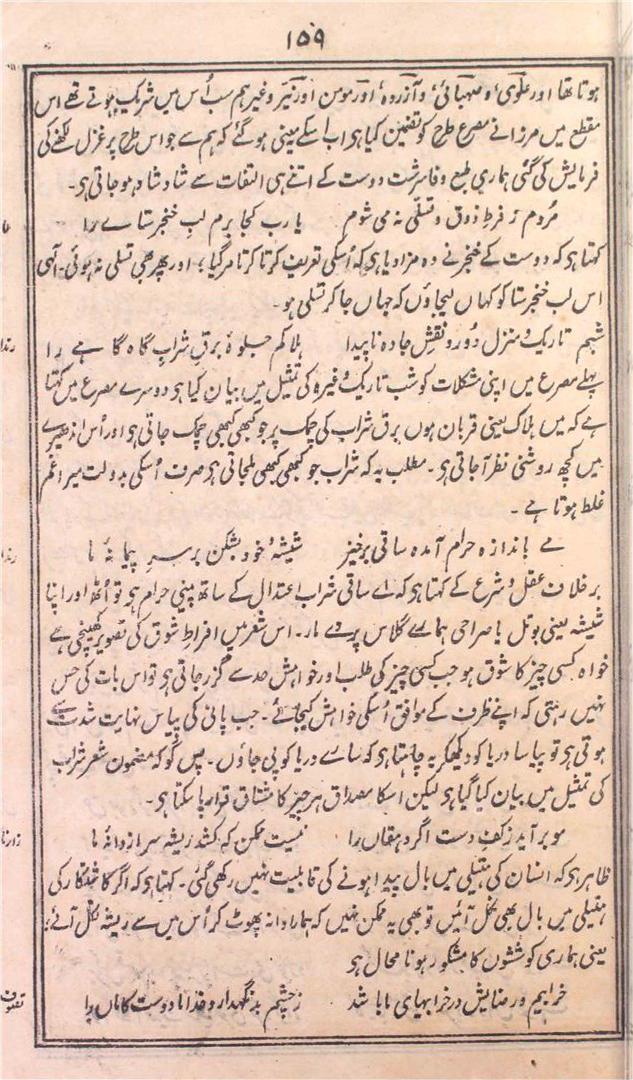 ۱۵۹
ہوتا تھا اور علوی، و صہبائی، و آزردہ، اور مومن اور نیر وغیرہم سب اُس میں شریک ہوتے تھے اس
مقطع میں مرزا نے مصرع طرح کو تضمین کیا ہی اب اسکے یہ معنی ہو گئے کہ ہم سے جو اس طرح پر غزل لکھنے کی
فرمایش کی گئی ہماری طبع وفا سرشت دوست کے اتنے ہی التفات سے شاد شاد ہو جاتی ہی۔
مُردم ز فرطِ ذوق و تسلّی نہ می شوم یا رب کجا برم لبِ خنجر ستاے را
کہتا ہی کہ دوست کے خنجر نے وہ مزا دیا ہی کہ اُسکی تعریف کرتا کرتا مر گیا، اور پھر بھی تسلی نہ ہوئی۔ الٰہی
اس لب خنجر ستا کو کہاں لیجاؤں کہ جہاں جا کر تسلی ہو۔
شبم تاریک و منزل دُور و نقشِ جادہ ناپیدا ہلاکم جلوۂ برقِ شرابِ گاہ گاہے را
پہلے مصرع میں اپنی مشکلات کو شب تاریک وغیرہ کی تمثیل میں بیان کیا ہی دوسرے مصرع میں کہتا
ہے کہ میں ہلاک یعنی قربان ہوں برق شراب کی چمک پر جو کبھی کبھی چمک جاتی ہی اور اُس اندھیرے
میں کچھ روشنی نظر آ جاتی ہی۔ مطلب یہ کہ شراب جو کبھی کبھی ملجاتی ہی صرف اُسکی بدولت میرا غم
غلط ہوتا ہے۔
مے باندازہ حرام آمدہ ساقی برخیز شیشۂ خود بشکن بر سرِ پیمانۂ ما
برخلاف عقل و شرع کے کہتا ہی کہ اے ساقی شراب اعتدال کے ساتھ پینی حرام ہی تو اُٹھ اور اپنا
شیشہ یعنی بوتل یا صراحی ہمارے گلاس پر دے مار۔ اس شعر میں افراطِ شوق کی تصویر کھینچی ہے
خواہ کسی چیز کا شوق ہو جب کسی چیز کی طلب اور خواہش حد سے گزر جاتی ہی تو اس بات کی حس
نہیں رہتی کہ اپنے ظرف کے موافق اُسکی خواہش کیجائے۔ جب پانی کی پیاس نہایت شدت سے
ہوتی ہی تو پیاسا دریا کو دیکھکر یہ چاہتا ہی کہ سارے دریا کو پی جاؤں۔ پس گو کہ مضمون شعر شراب
کی تمثیل میں بیان کیا گیا ہی لیکن اسکا مصداق ہر چیز کا مشتاق قرار پا سکتا ہی۔
مو برآید ز کفِ دست اگر دہقاں را نیست ممکن کہ کشد ریشہ سر از دانۂ ما
ظاہر ہی کہ انسان کی ہتیلی میں بال پیدا ہونے کی قابلیت نہیں رکھی گئی۔ کہتا ہی کہ اگر کاشتکار کی
ہتیلی میں بال بھی نکل آئیں تو بھی یہ ممکن نہیں کہ ہمارا دانہ پھوٹ کر اُس میں سے ریشہ نکل آئے؛
یعنی ہماری کوششوں کا مشکور ہونا محال ہی
خرابیم و رضایش در خرابیہای ما باشد ز چشم بد نگہدارد خدا ما دوست کاماں را
تصوف